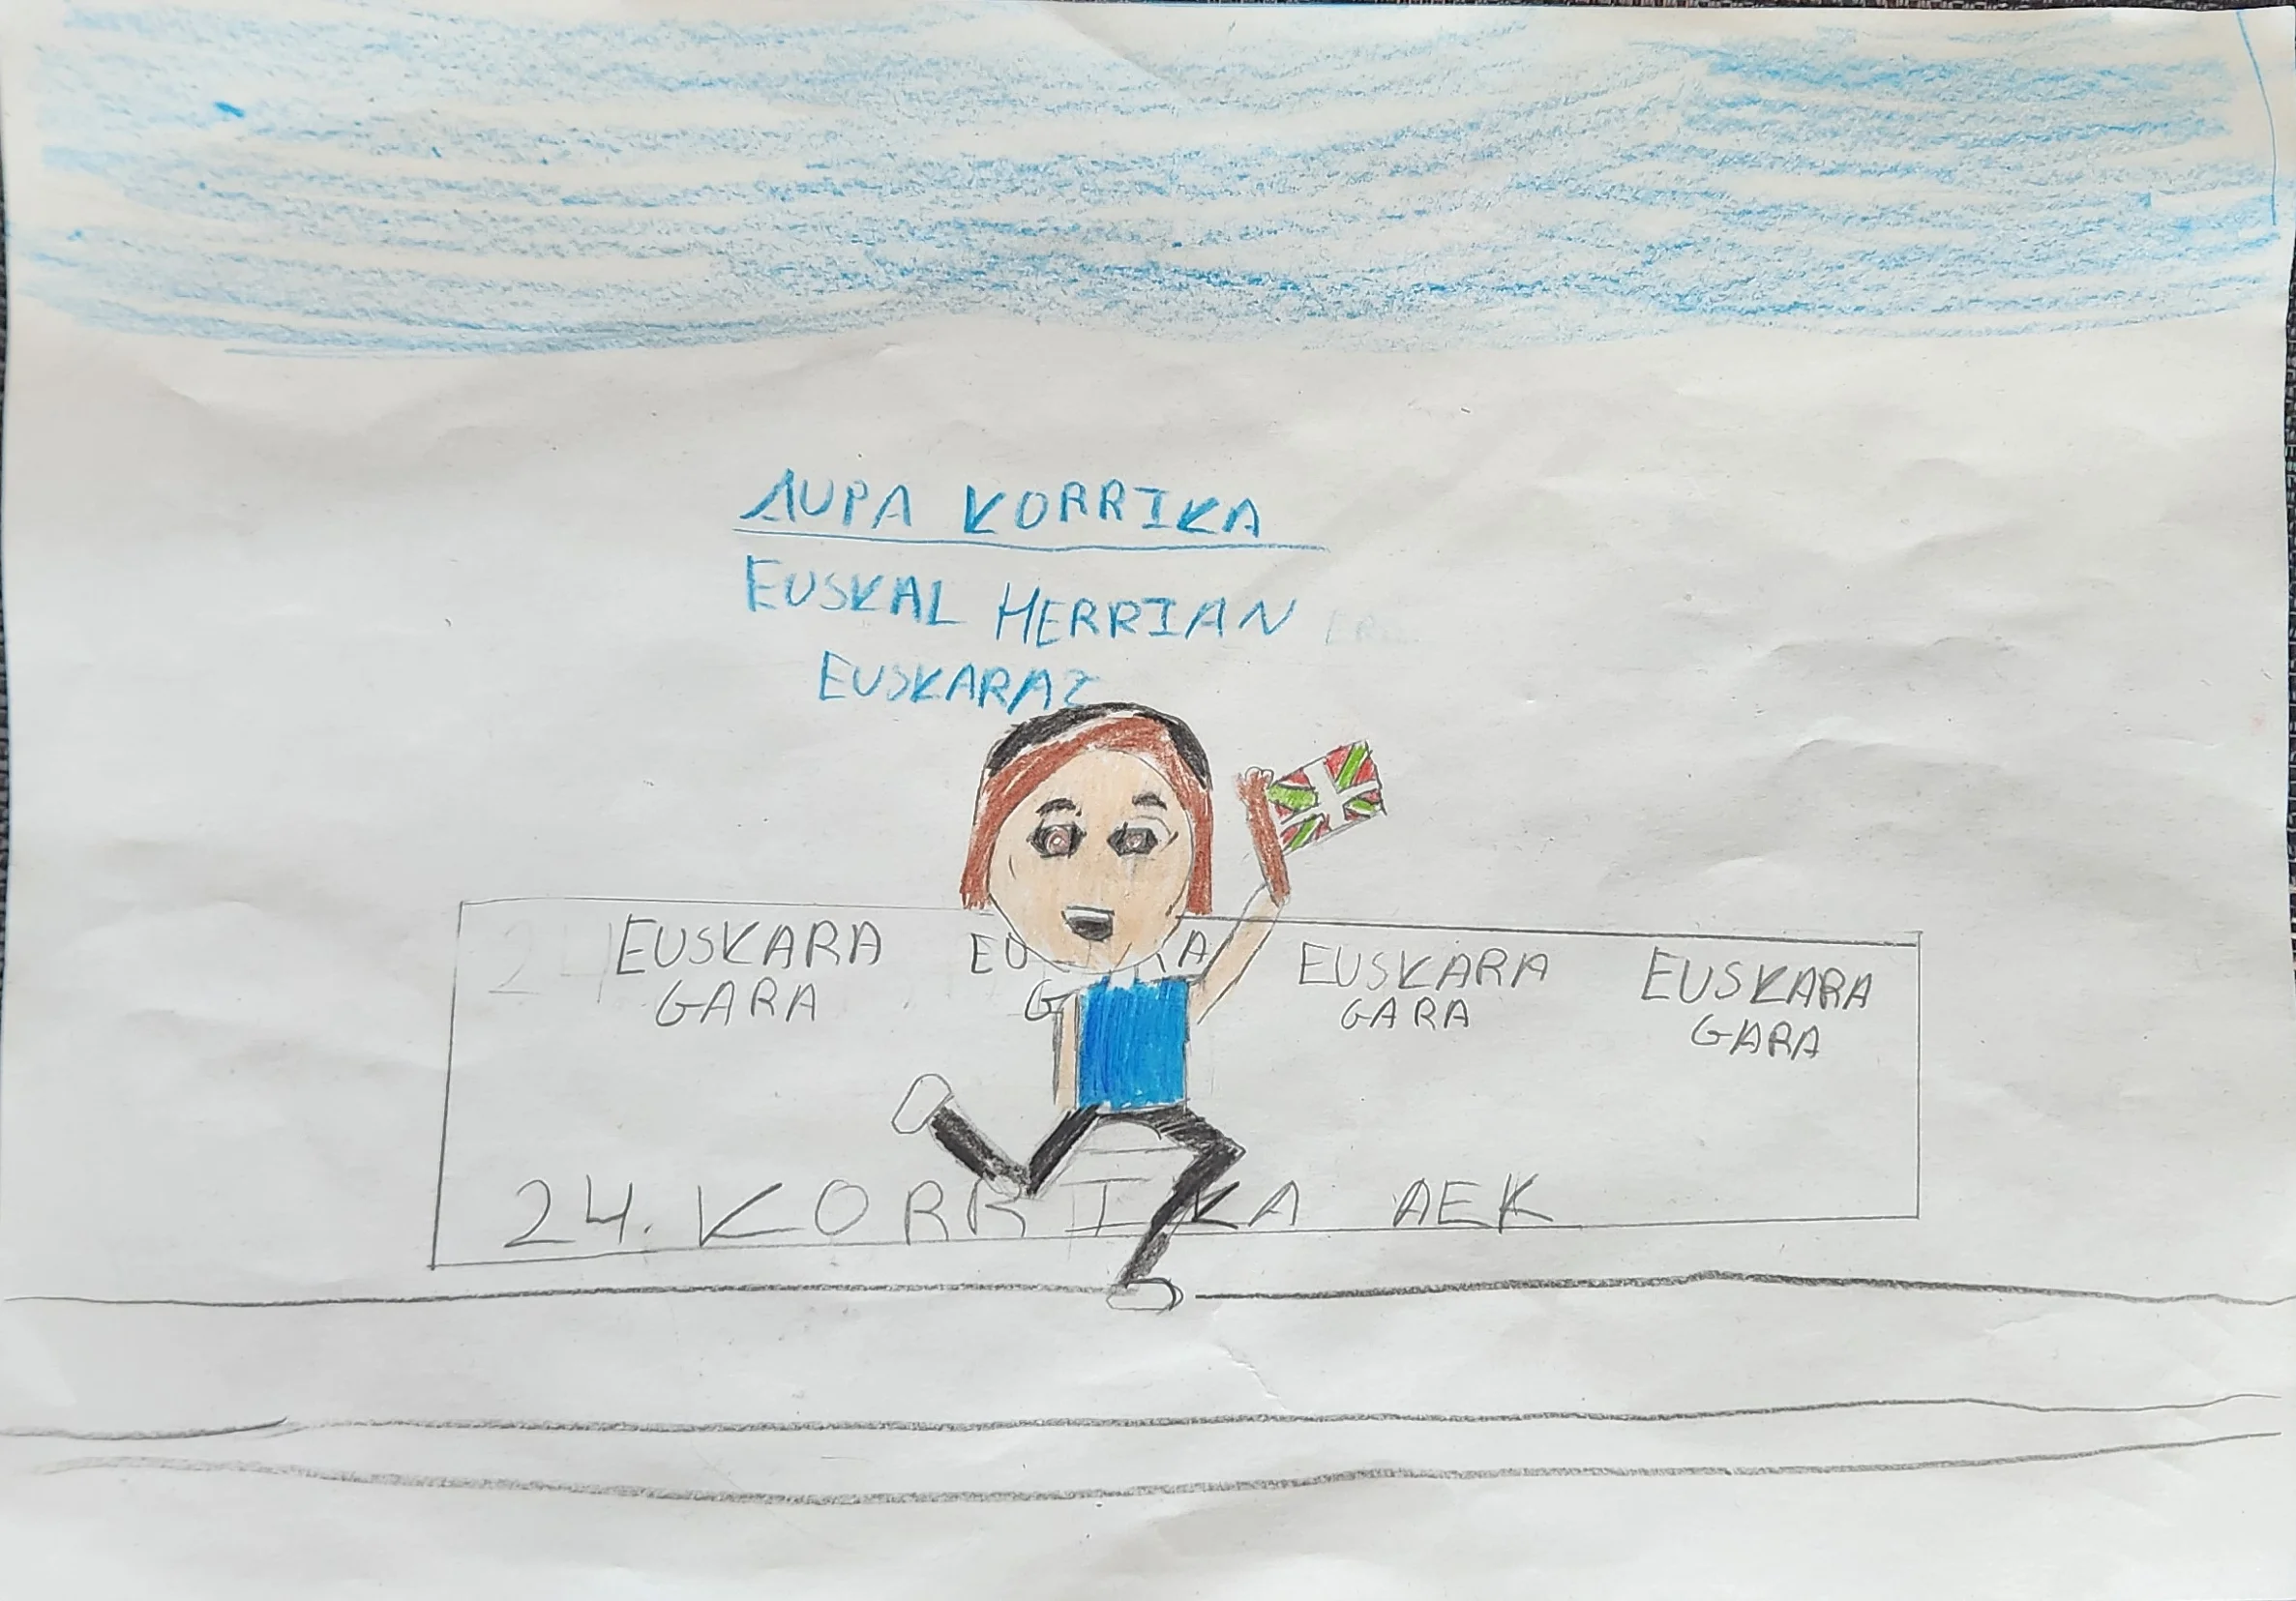 AUPA KORRIKA
EUSKAL HERRIAN
EUSKARAZ
EUSKARA EU KA EUSKARA EUSKARA
GARA G GARA GARA
24. KORRIKA AEK